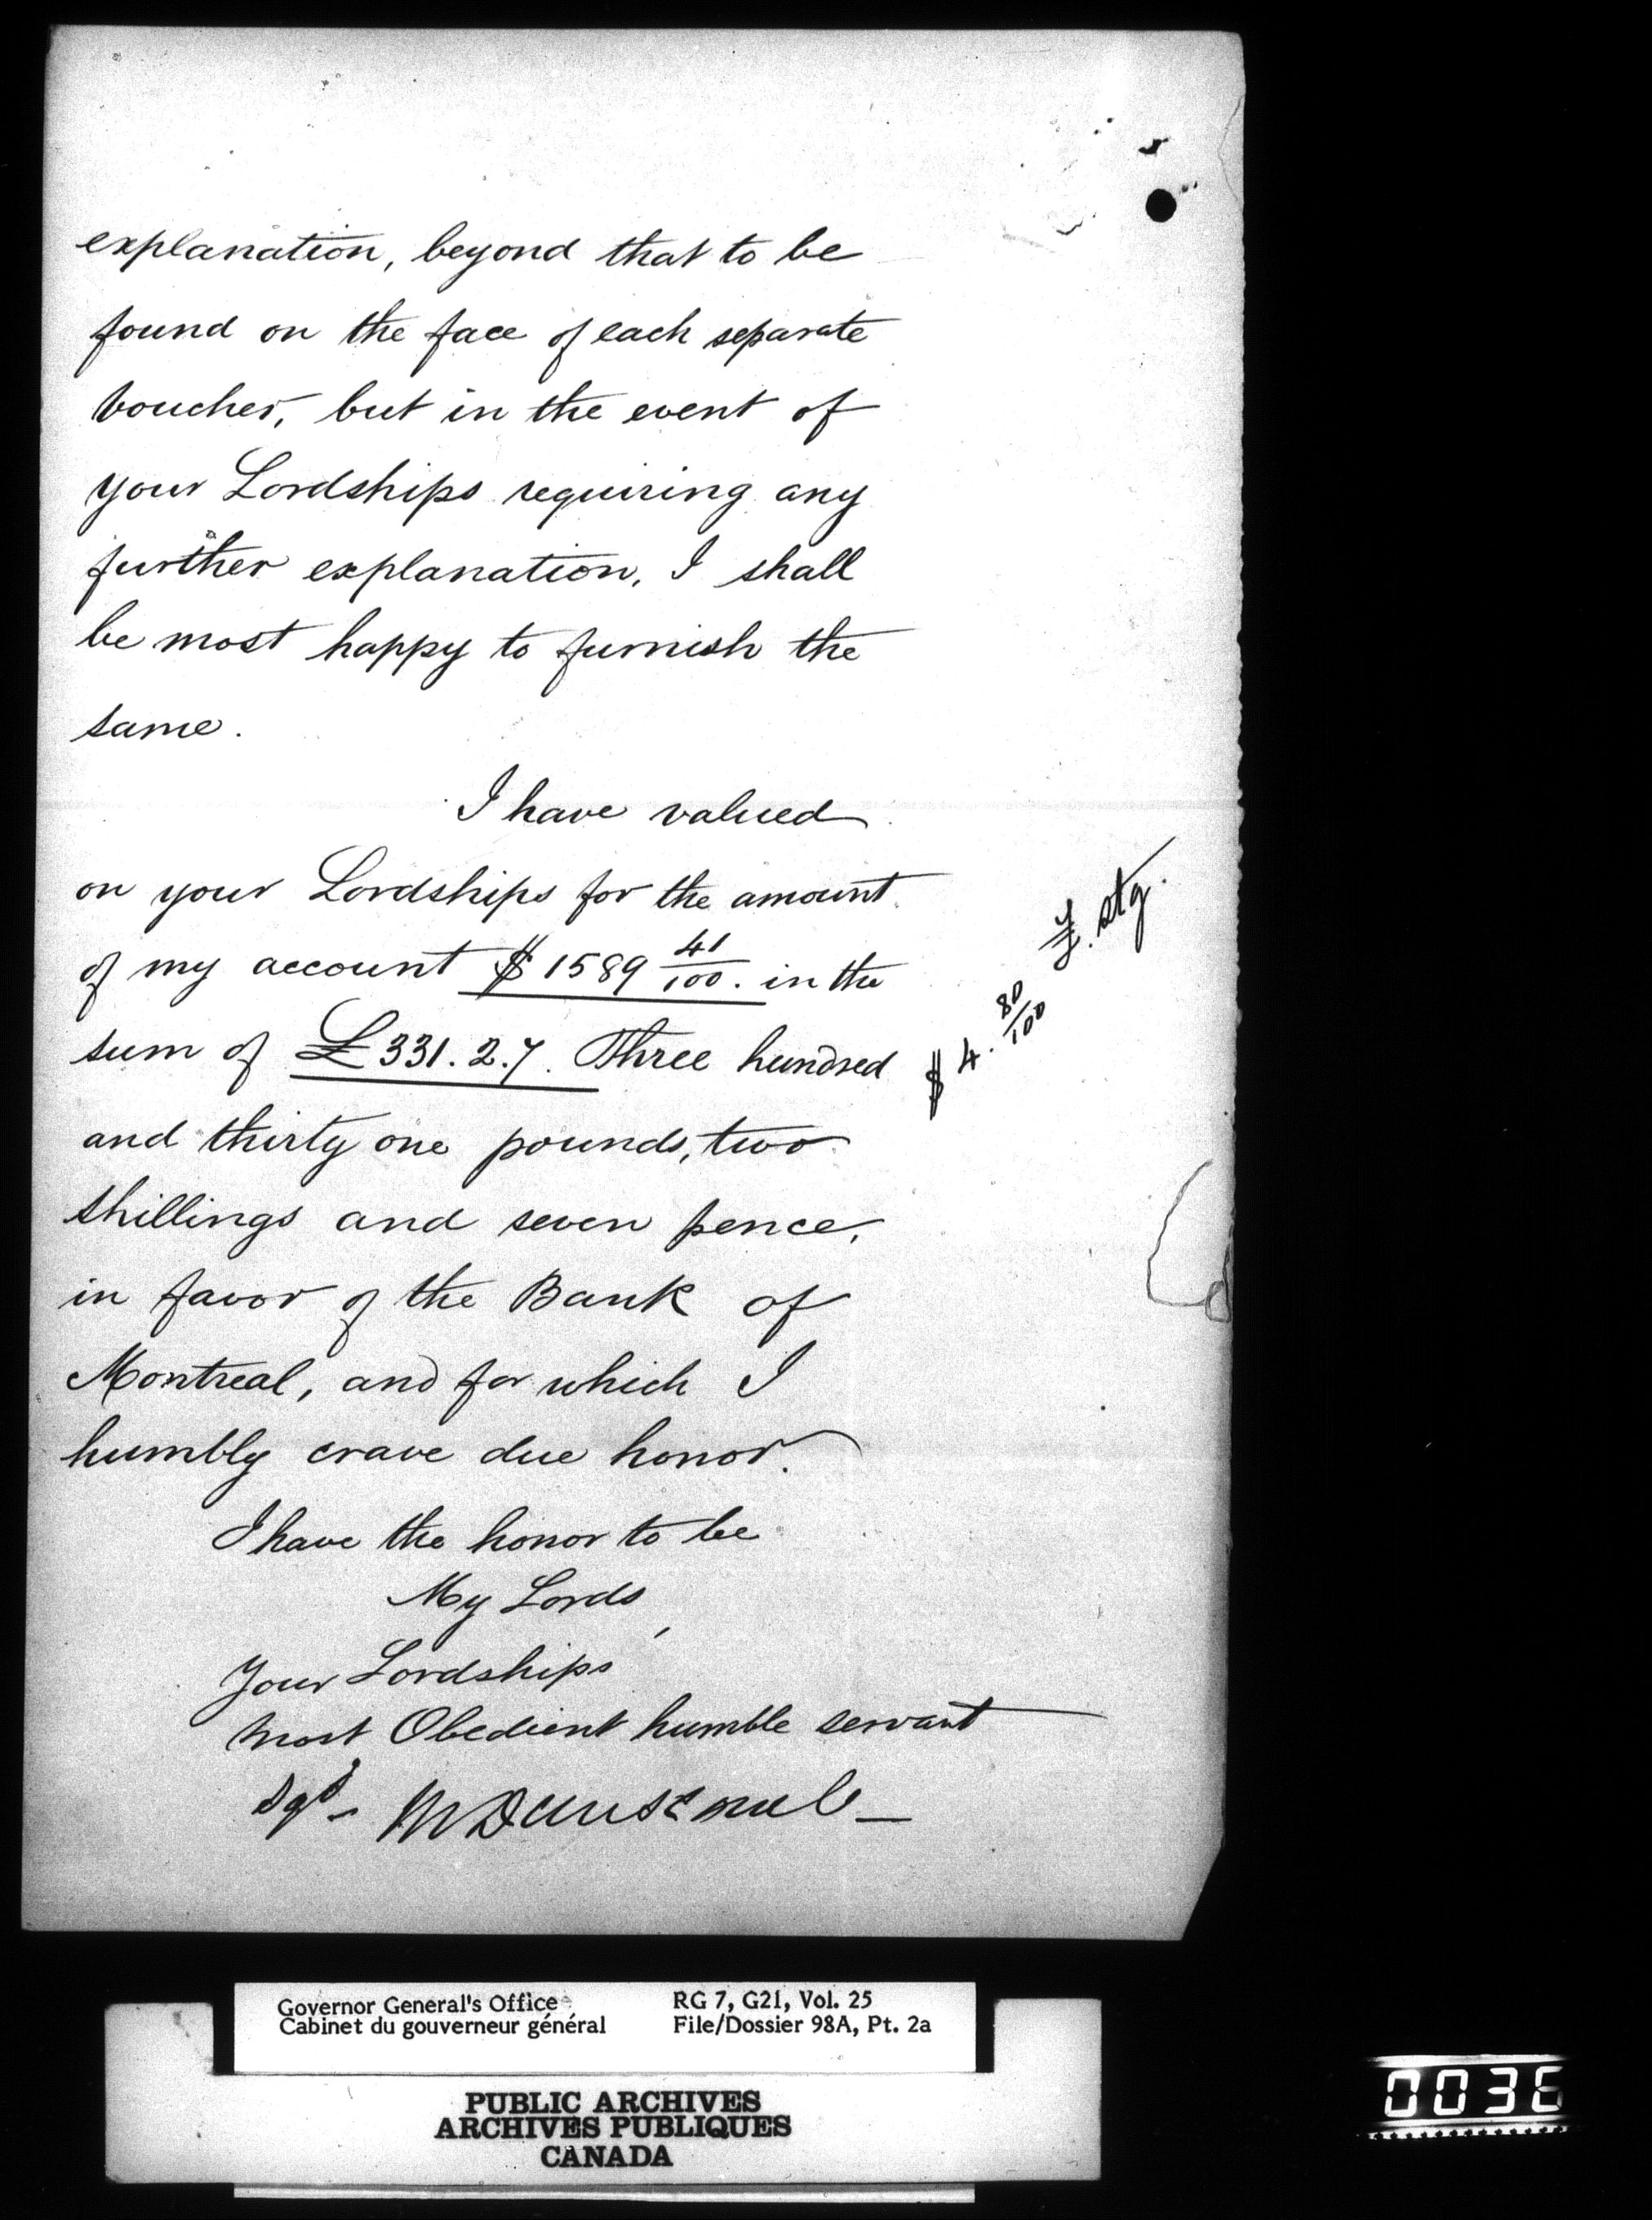 explanation, beyond that to be
found on the face of each separate
voucher, but in the event of
your Lordships requiring any
further explanation, I shall
be most happy to furnish the
same.
I have valued
on your Lordships for the amount
of my account $1589 41/100. in the
sum of £331.2.7. Three hundred
and thirty one pounds, two
shillings and seven pence,
in favor of the Bank of
Montreal, and for which I
humbly crave due honor.
$4. 80/100 £. stg.
I have the honor to be
My Lords,
Your Lordships
most Obedient humble servant
Sgd -
Governor General's Office
Cabinet du gouverneur général
RG 7, G21, Vol. 25
File/Dossier 98A, Pt. 2a
PUBLIC ARCHIVES
ARCHIVES PUBLIQUES
CANADA